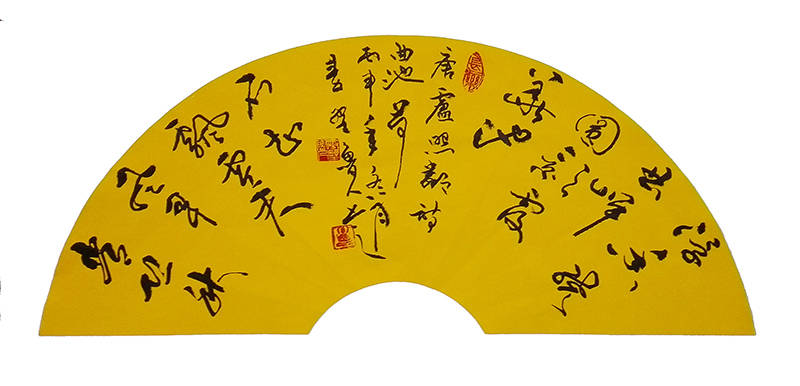 浮香繞
曲岸
圓影覆
華池
唐盧照鄰詩
曲池荷
丙申年冬月
不知
飄零君
風早
常恐秋